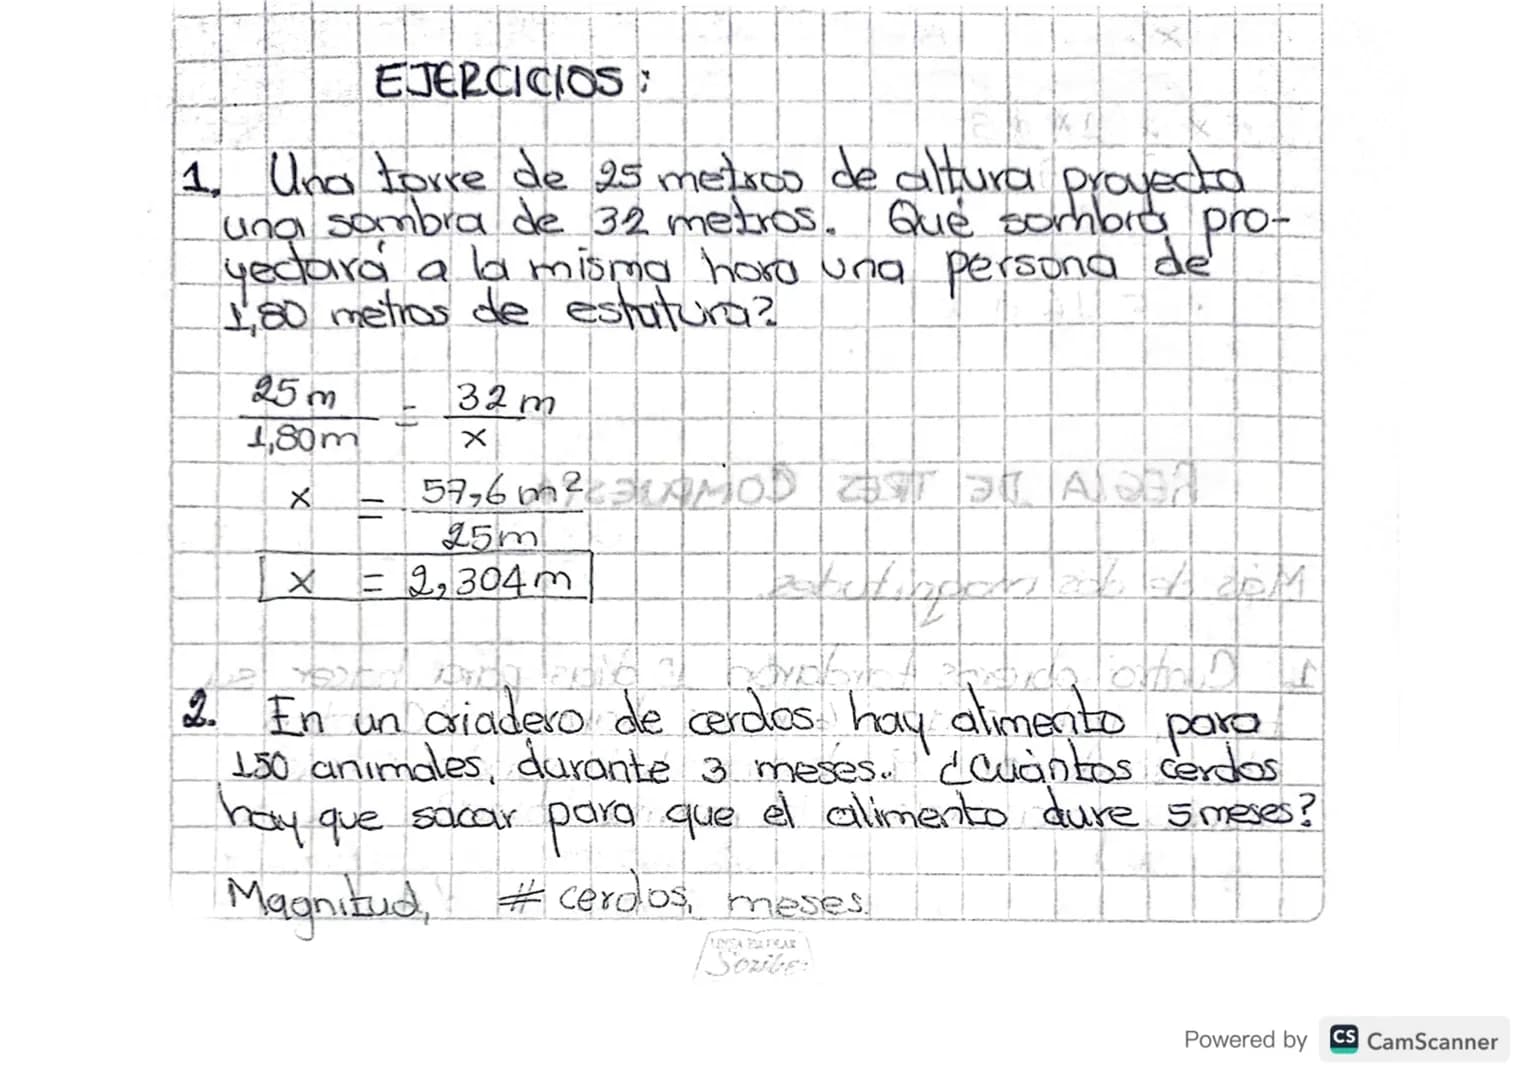 EJERCICIOS:
1. Una torre de 25 metros de altura proyecta
una sombra de 32 metros. Qué sombra pro-
yectará a la misma hora una persona de
1,80 metros de estatura?
25 m / 1,80 m = 32 m / x
x = 57,6 m² / 25 m
x = 2,304 m
REGLA DE TRES COMPUESTA
Más de dos magnitudes
2. En un criadero de cerdos hay alimento para
150 animales, durante 3 meses. ¿Cuántos cerdos
hay que sacar para que el alimento dure 5 meses?
Magnitud, # cerdos, meses.
Scribe
Powered by CS CamScanner